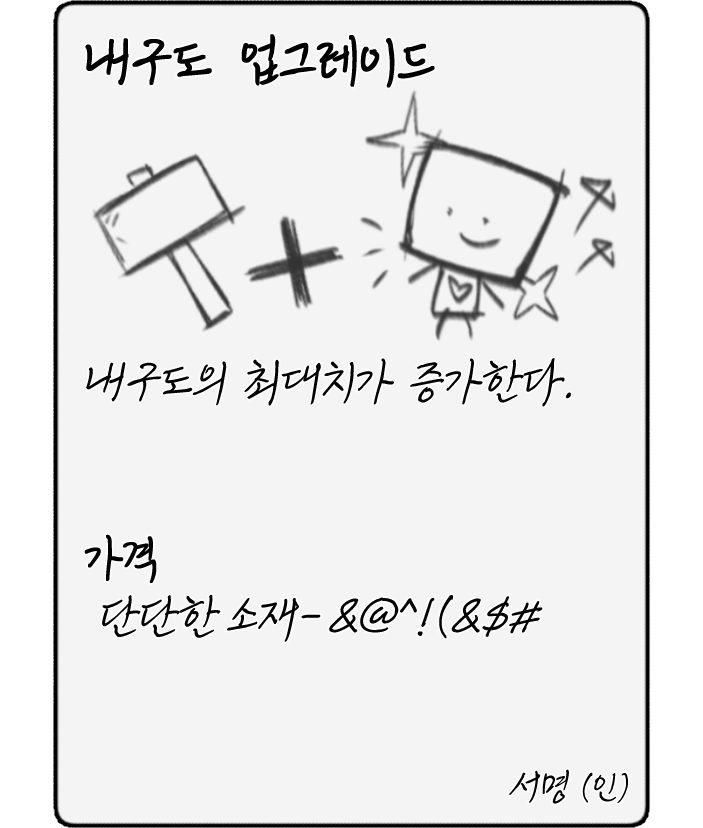 내구도 업그레이드
내구도의 최대치가 증가한다.
가격
단단한 소재-&@^!(&$#
서명 (인)